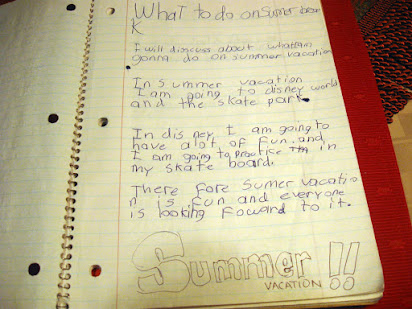 What to do on sumer brea
k
I will disscuss about what iam
gonna do on summer vacation
In summer vacation
I am going to disney world
and the skate park
In disney I am going to
have alot of fun. and
I am going to practice in
my skate board.
There fore sumer vacatio
n is fun and everyone
is looking foward to it.
Summer !!
VACATION